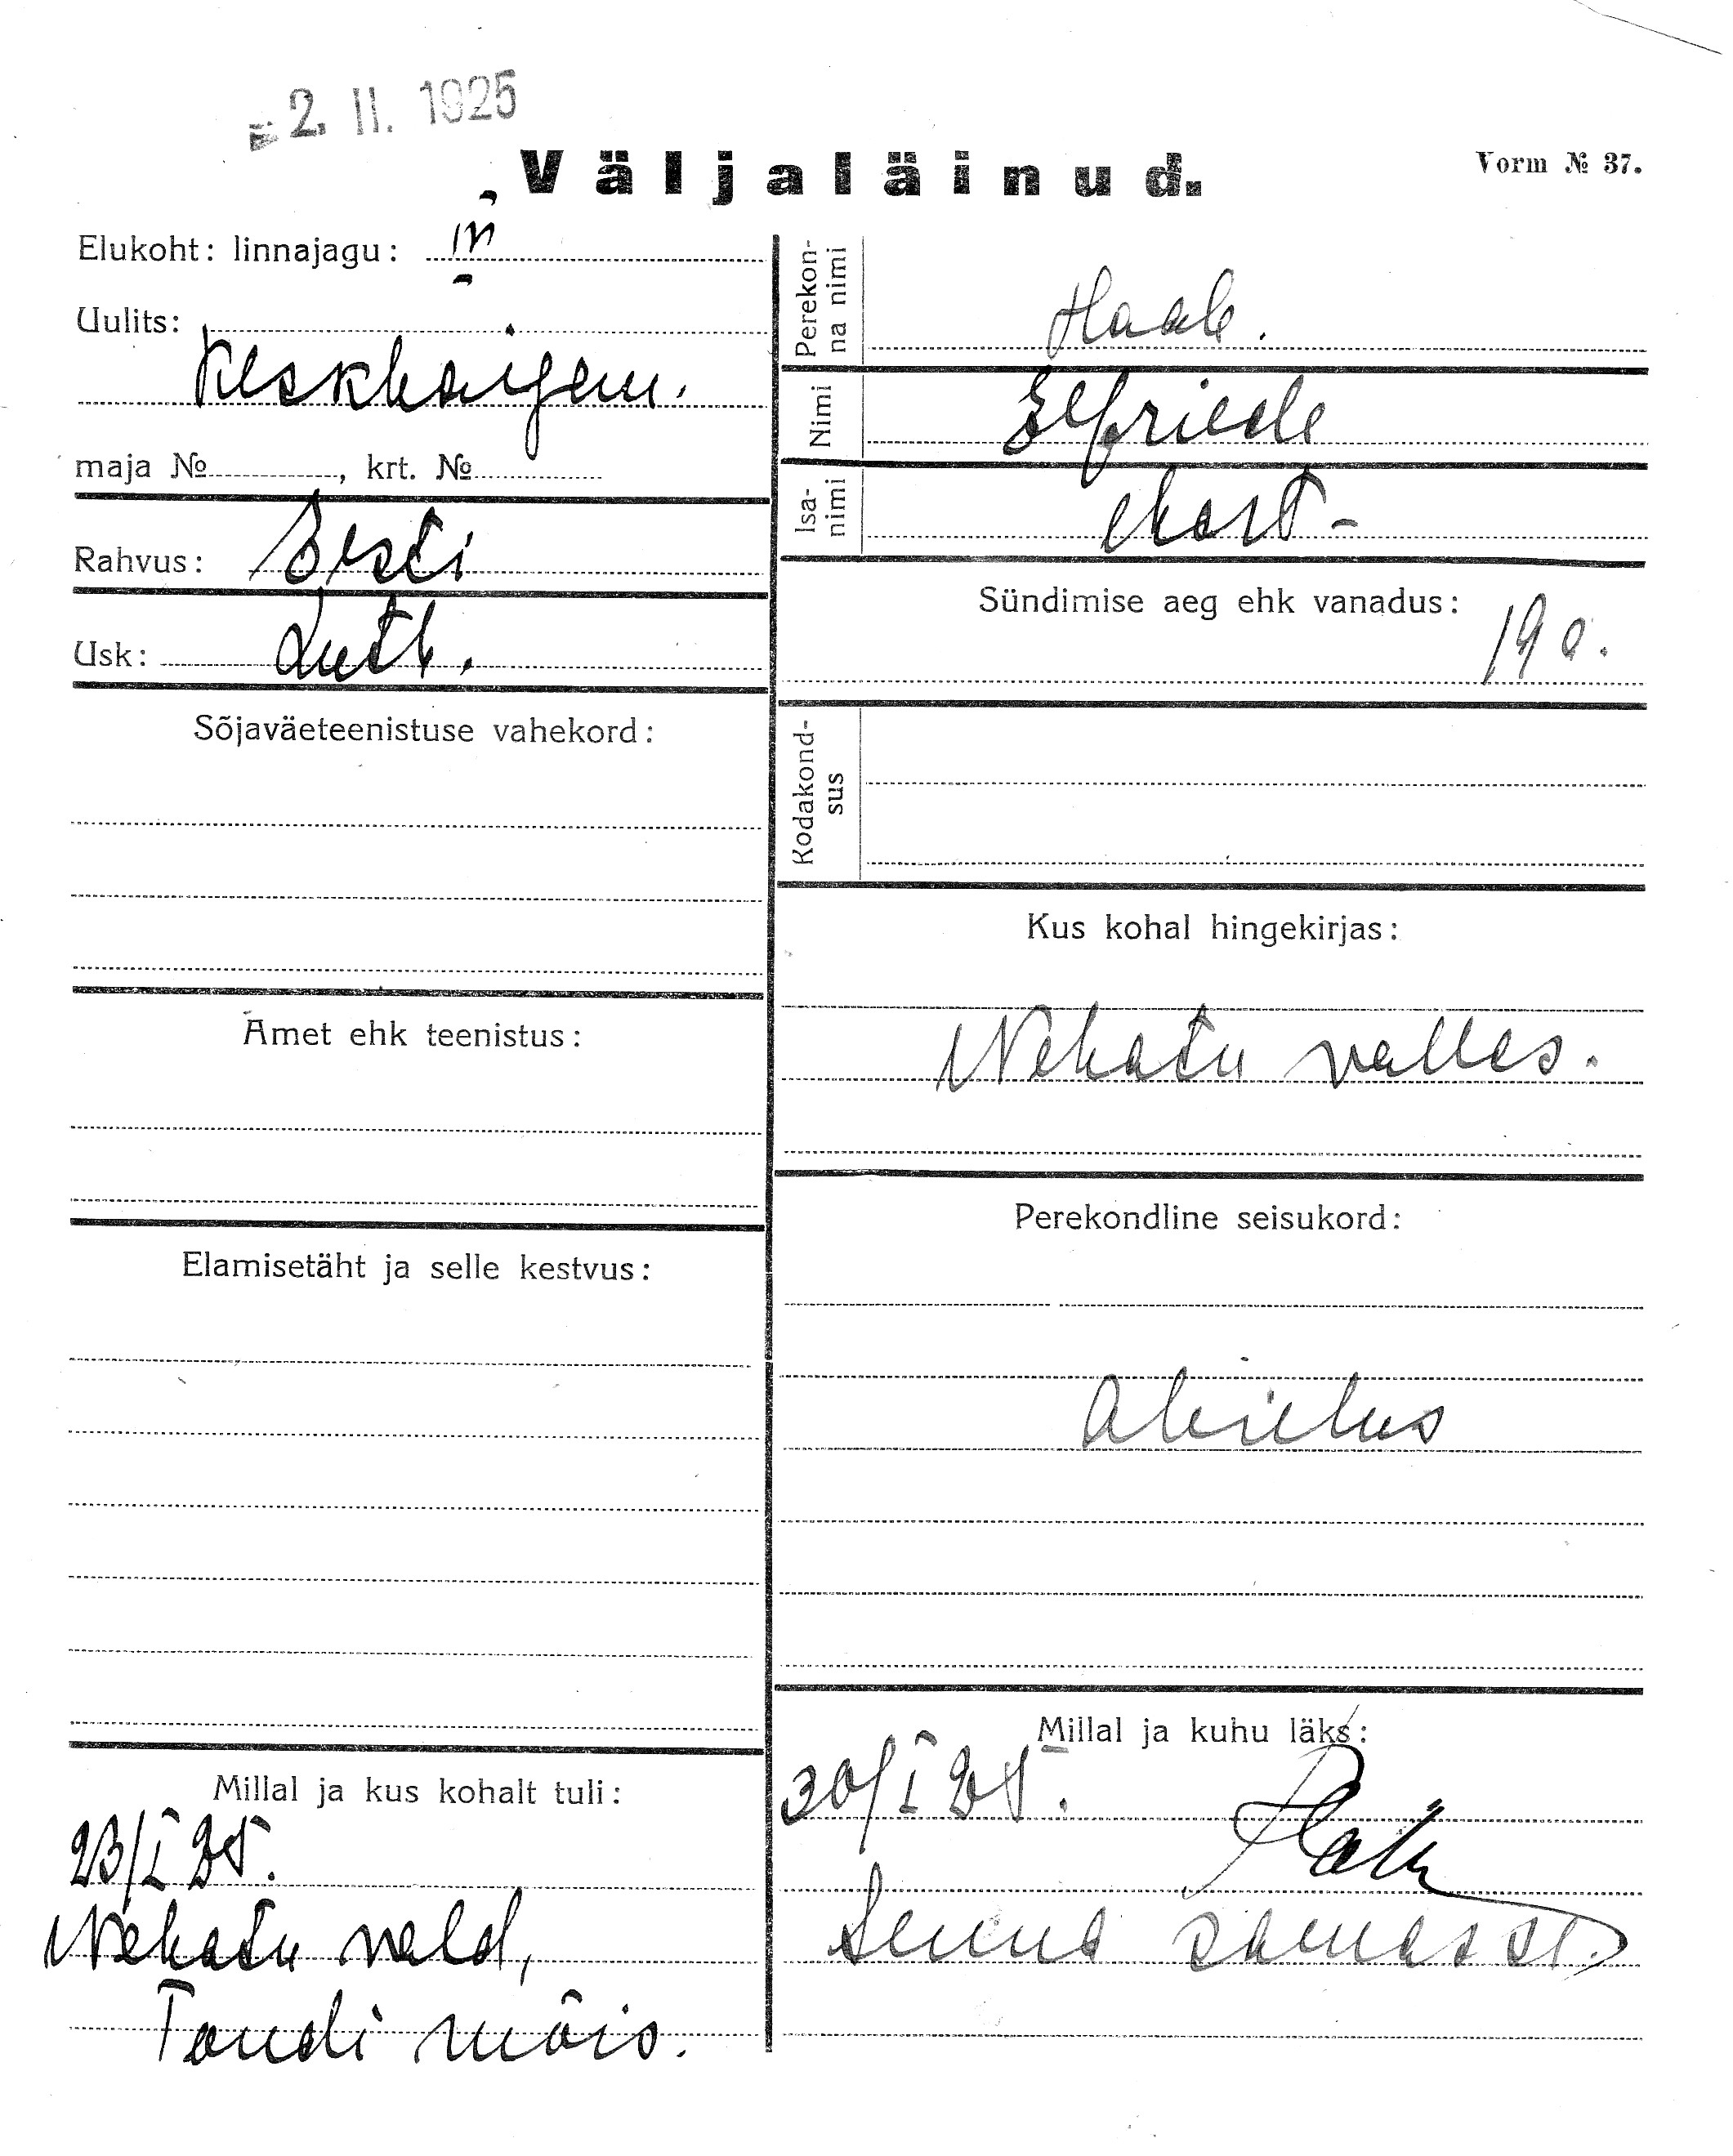 2. II. 1925
Väljaläinud.
Vorm № 37.
Elukoht: linnajagu: IV
Uulits:
Keskhaigem.
maja № , krt. №
Rahvus: Eesti
Usk: Luth.
Sõjaväeteenistuse vahekord:
Amet ehk teenistus:
Elamisetäht ja selle kestvus:
Millal ja kus kohalt tuli:
23/I 25.
Nehatu vald,
Tondi mõis.
Perekon-
na nimi
Haak.
Nimi
Elfriede
Isa-
nimi
Sündimise aeg ehk vanadus:
19 a.
Kodakond-
sus
Kus kohal hingekirjas:
Nehatu vallas.
Perekondline seisukord:
abielus
Millal ja kuhu läks:
30/I 25.
Senna samasse.